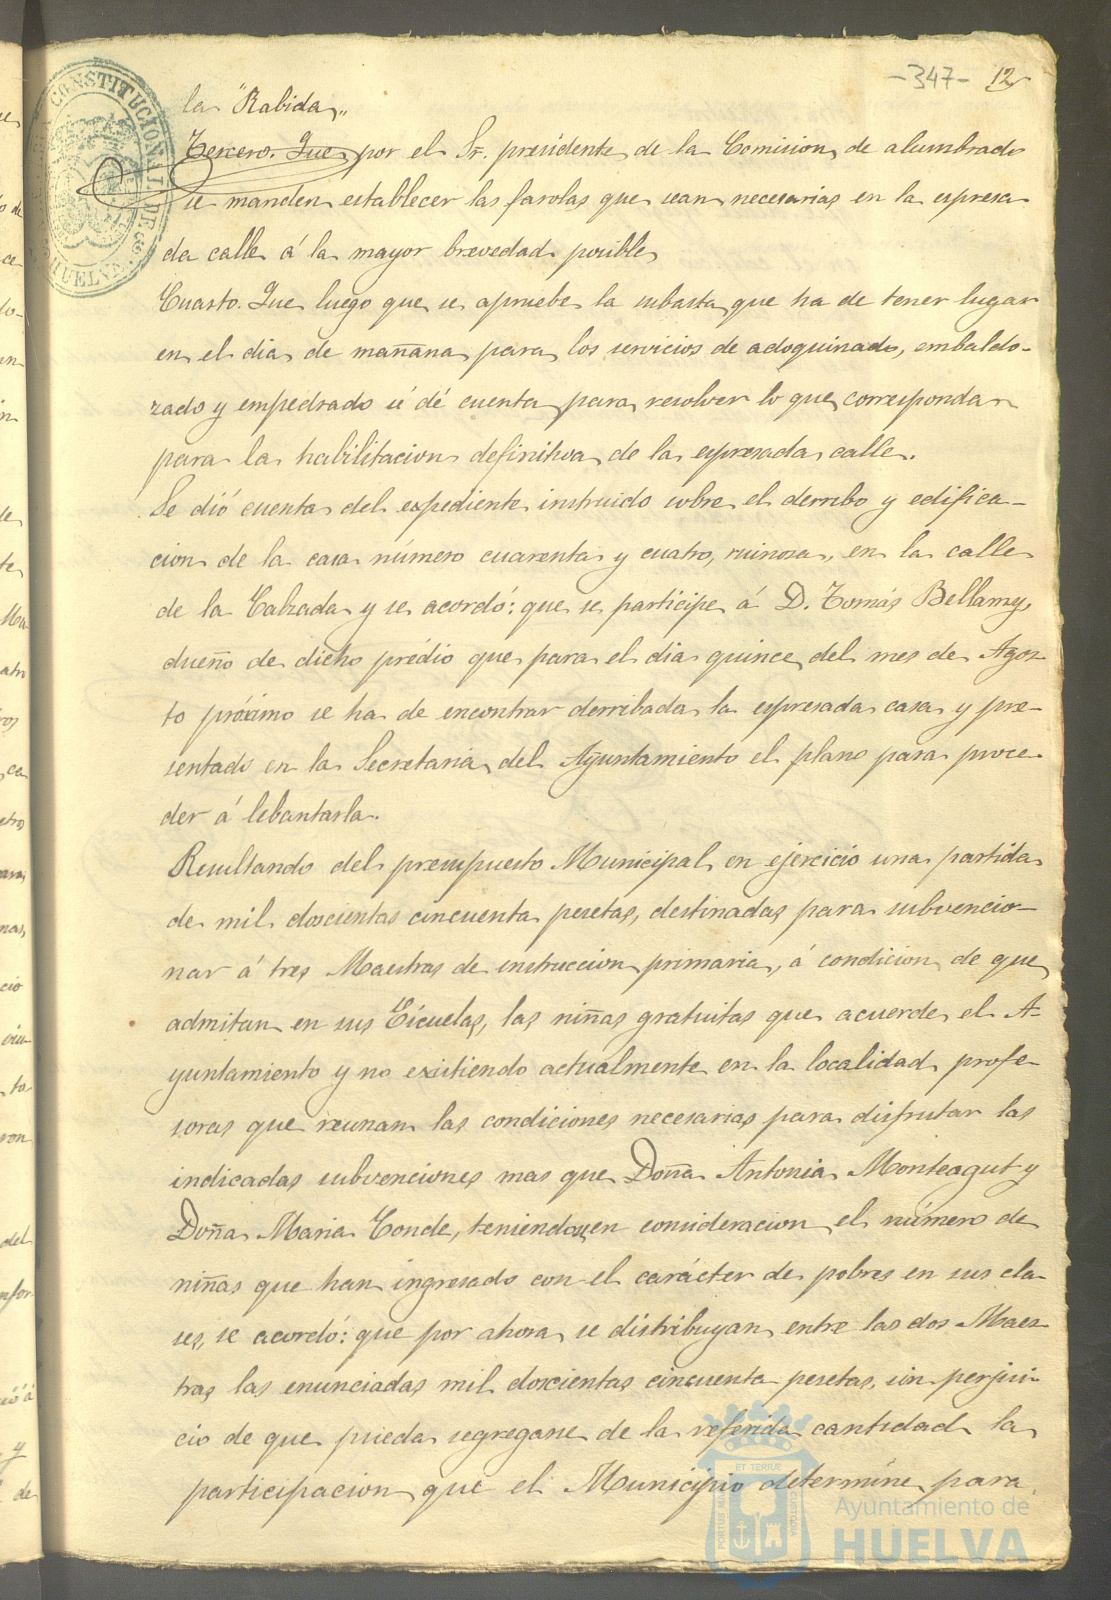 -347- 12
la "Rabida„
Tercero. Que por el Sr. presidente de la Comision de alumbrado
se manden establecer las farolas que sean necesarias en la espresa-
da calle á la mayor brevedad posible
Cuarto. Que luego que se apruebe la subasta que ha de tener lugar
en el dia de mañana para los servicios de adoquinado, embaldo-
zado y empedrado sé dé cuenta para resolver lo que corresponda
para la habilitacion definitiva de la espresada calle.
Se dió cuenta del expediente instruido sobre el derribo y edifica-
cion de la casa número cuarenta y cuatro, ruinosa, en la calle
de la Calzada y se acordó: que se participe á D. Tomás Bellamy,
dueño de dicho prédio que para el dia quince del mes de Agos-
to próximo se ha de encontrar derribada la espresada casa y pre-
sentado en la Secretaria del Ayuntamiento el plano para proce-
der á lebantarla.
Resultando del presupuesto Municipal en ejercicio una partida
de mil doscientas cincuenta pesetas, destinadas para subvencio-
nar á tres Maestras de instruccion primaria, á condicion de que
admitan en sus Escuelas, las niñas gratuitas que acuerde el A-
yuntamiento y no existiendo actualmente en la localidad profe-
soras que reunan las condiciones necesarias para disfrutar las
indicadas subvenciones mas que Doña Antonia Monteagut y
Doña Maria Conde, teniendo en consideracion el número de
niñas que han ingresado con el carácter de pobres en sus cla-
ses, se acordó: que por ahora se distribuyan entre las dos Maes-
tras las enunciadas mil doscientas cincuenta pesetas, sin perjui-
cio de que pueda segregarse de la referida cantidad la
participacion que el Municipio determine para
CONSTITUCIONAL DE HUELVA
PORTUS MARIS ET TERRAE CUSTODIA
Ayuntamiento de
HUELVA